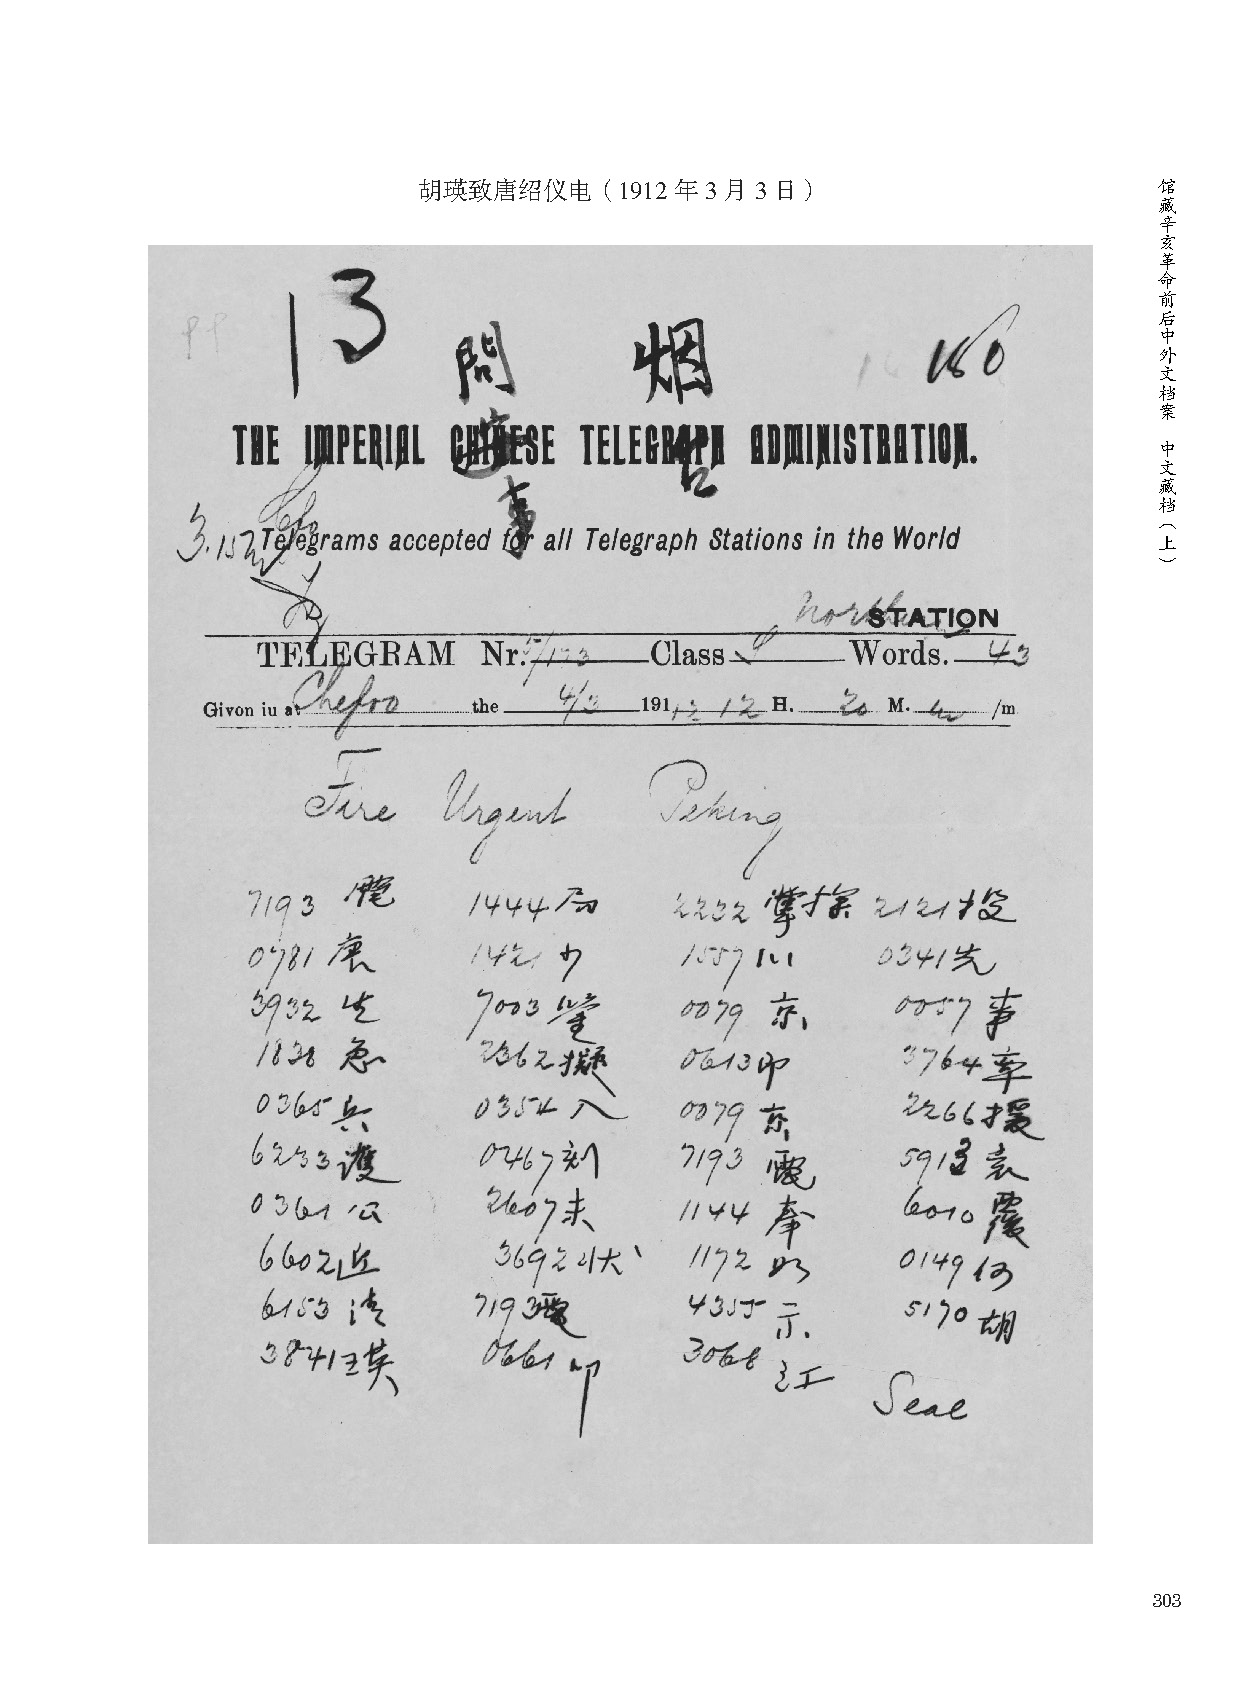 胡瑛致唐绍仪电（1912 年 3 月 3 日）
馆藏辛亥革命前后中外文档案 中文藏档（上）
13 問 烟 160
THE IMPERIAL CHINESE TELEGRAPH ADMINISTRATION.
Telegrams accepted for all Telegraph Stations in the World
Northern STATION
TELEGRAM Nr. 5/173 Class Words. 43
Givon iu at Chefoo the 4/3 191 12 12 H. 20 M. /m
Fire Urgent Peking
7193 電 1444 局 2232 探 2121 投
0781 唐 1421 少 1557 川 0341 先
3932 生 7003 鑒 0079 京 0057 事
1838 急 2362 擬 0613 叩 3764 率
0365 兵 0354 入 0079 京 2266 援
6233 護 0467 刻 7193 電 5913 袁
0361 公 2607 未 1144 奉 6010 覆
6602 近 3692 状 1172 如 0149 何
6153 請 7193 電 4355 示 5170 胡
3841 瑛 0661 叩 3068 江 Seal
303